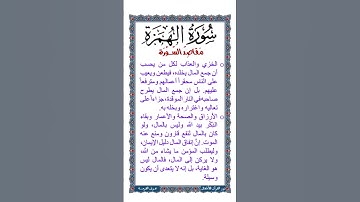 سُورَة الهُمَزَة
مقاصد السورة
الخزي والعذاب لكل من يحسب
أن جمع المال يخلده، فيطعن ويعيب
على الناس محقراً أعمالهم ومترفعاً
عليهم. بل إن جمع المال يطرح
صاحبه في النار الموقدة، جزاءً على
تعاليه واغتراره وبخله به.
الأرزاق والصحة والأعمار وبقاء
الذكر بيد الله وليس بالمال، ولو
كان بالمال لنفع قارون ومنع عنه
الموت. إنَّ إنفاق المال دليل الإيمان،
وليطلب المؤمن ما يشاء من الله،
ولا يركن إلى المال، فالمال ليس
هو الغاية، بل إنه لا يتعدى أن يكون
وسيلة.